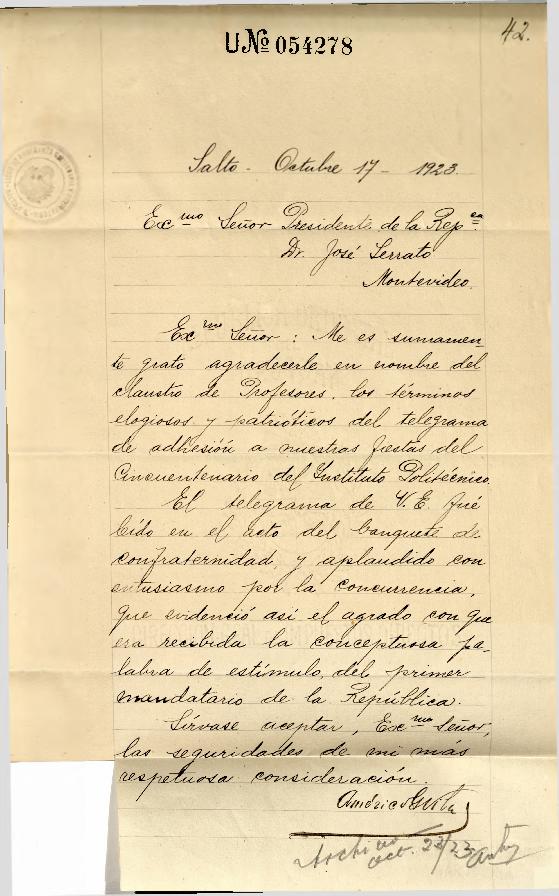 UNº 054278
42.
Salto - Octubre 17 - 1923.
Excmo Señor Presidente de la Repca
Dr. José Serrato
Montevideo.
Excmo Señor: Me es sumamen-
te grato agradecerle en nombre del
Claustro de Profesores, los términos
elogiosos y patrióticos del telegrama
de adhesión a nuestras fiestas del
Cincuentenario del Instituto Politécnico.
El telegrama de V. E. fué
leído en el acto del banquete de
confraternidad, y aplaudido con
entusiasmo por la concurrencia,
que evidenció así el agrado con que
era recibida la conceptuosa pa-
labra de estímulo, del primer
mandatario de la República.
Sírvase aceptar, Excmo Señor,
las seguridades de mi más
respetuosa consideración.
Américo
Archivo
oct. 23/23